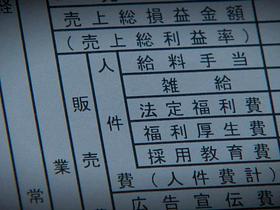 売上総損益金額
(売上総利益率)
給料手当
雑給
法定福利費
福利厚生費
採用教育費
(人件費計)
広告宣伝費
人件費
販売
業
経常